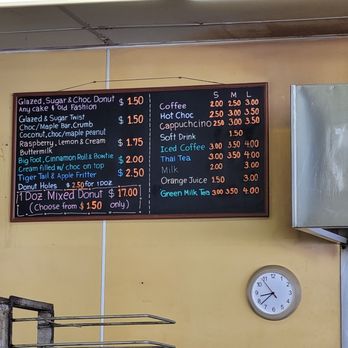 Glazed, Sugar & Choc Donut $ 1.50
Any cake & old Fashion
Glazed & Sugar Twist $ 1.50
Choc/Maple Bar, Crumb
Coconut, choc/maple peanut
Raspberry, Lemon & Creme $ 1.75
Buttermilk
Big Foot, Cinnamon Roll & Bowtie $ 2.00
Cream filled w/ choc on top
Tiger Tail & Apple Fritter $ 2.50
Donut Holes $ 2.50 for 1 DOZ
1 Doz Mixed Donut $ 17.00
(Choose from $ 1.50 only)
S M L
Coffee 2.00 2.50 3.00
Hot Choc 2.50 3.00 3.50
Cappuchcino 2.50 3.00 3.50
Soft Drink 1.50
Iced Coffee 3.00 3.50 4.00
Thai Tea 3.00 3.50 4.00
Milk 2.00 3.00
Orange Juice 1.50 3.50
Green Milk Tea 3.00 3.50 4.00